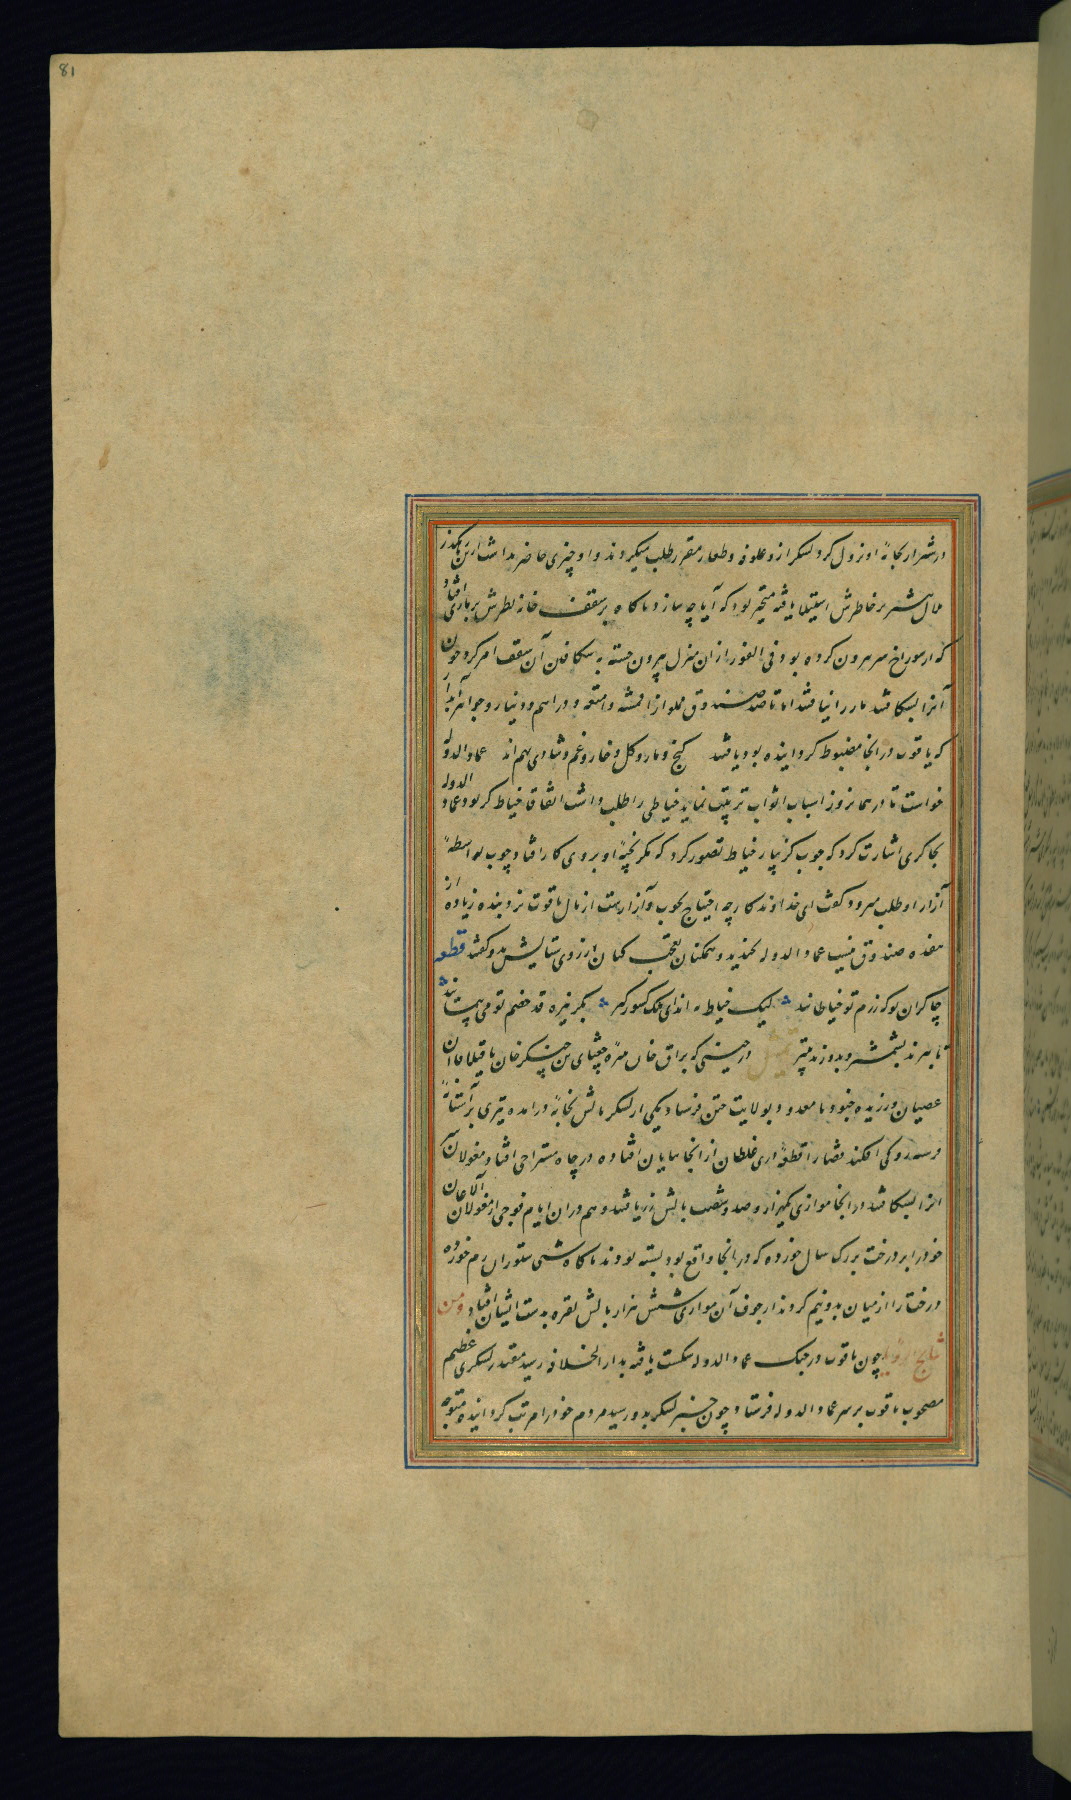 81
در شیراز بخانه او نزول کرد لشکر ازو علوفه و طعام مقرر طلب میکردند و او چیزی حاضر نداشت ازین رهگذر
ملال بر خاطرش استیلا یافته متحیر بود که آیا چه سازد ناگاه بر سقف خانه نظرش بر ماری افتاد
که از سوراخ سر بیرون کرده بود فی الفور از ان منزل بیرون جسته به شکافتن آن سقف امر کرد چون
آنرا بشکافتند مار را نیافتند اما تا صد صندوق مملو از اقمشه و امتعه و دراهم و دینار و جواهر
که یاقوت در انجا مضبوط گردانیده بود یافتند گنج و مار و گل و خار و غم و شادی بهم اند عماد الدوله
خواست تا در همان روز اسباب اثواب ترتیب نماید خیاطی را طلب داشت اتفاقا خیاط کر بود عماد الدوله
بچاکری اشارت کرد که چوب گز بیار خیاط تصور کرد که مگر بخیه او بر روی کار افتاد و چوب بواسطه
آزار او طلب میرود گفت ای خداوندکار چه احتیاج بچوب و آزار است از مال یاقوت نزد بنده زیاده از
هفده صندوق نیست عماد الدوله بخندید و همگنان تعجب کنان از روی ستایش بدو گفتند قطعه
چاکران تو که رزم تو خیاطانند لیک خیاط نه اند ای ملک کشورگیر بگز نیزه قد خصم تو می پیمایند
تا ببرند بشمشیر و بدوزند بتیر در حینی که براق خان نبیره چغتای بن چنگیز خان با قیلا قاآن
عصیان ورزیده جنود نامعدود بولایت ختن فرستاد یکی از لشکریانش بخانه درامده تیری بر آشیانه
افکند قضا را قطعه دری غلطان از انجا بپایان افتاده در چاه مستراحی افتاد مغولان
انرا بشکافتند در انجا موازی یکهزار و صد و شصت بالش زر یافتند و هم دران ایام فوجی از مغولان
خود را بر درخت بزرگ سال خورده که در انجا واقع بود بسته بودند ناگاه ستوران رم خورده
درخت را از میان بدو نیم کردند از جوف آن موازی شش هزار بالش نقره بدست ایشان افتاد و من
چون یاقوت در جنگ عماد الدوله شکست یافته بدار الخلافه رسید مقتدر لشکری عظیم
مصحوب یاقوت بر سر عماد الدوله فرستاد و چون خبر لشکر بدو رسید مردم خود را مرتب گردانیده متوجه